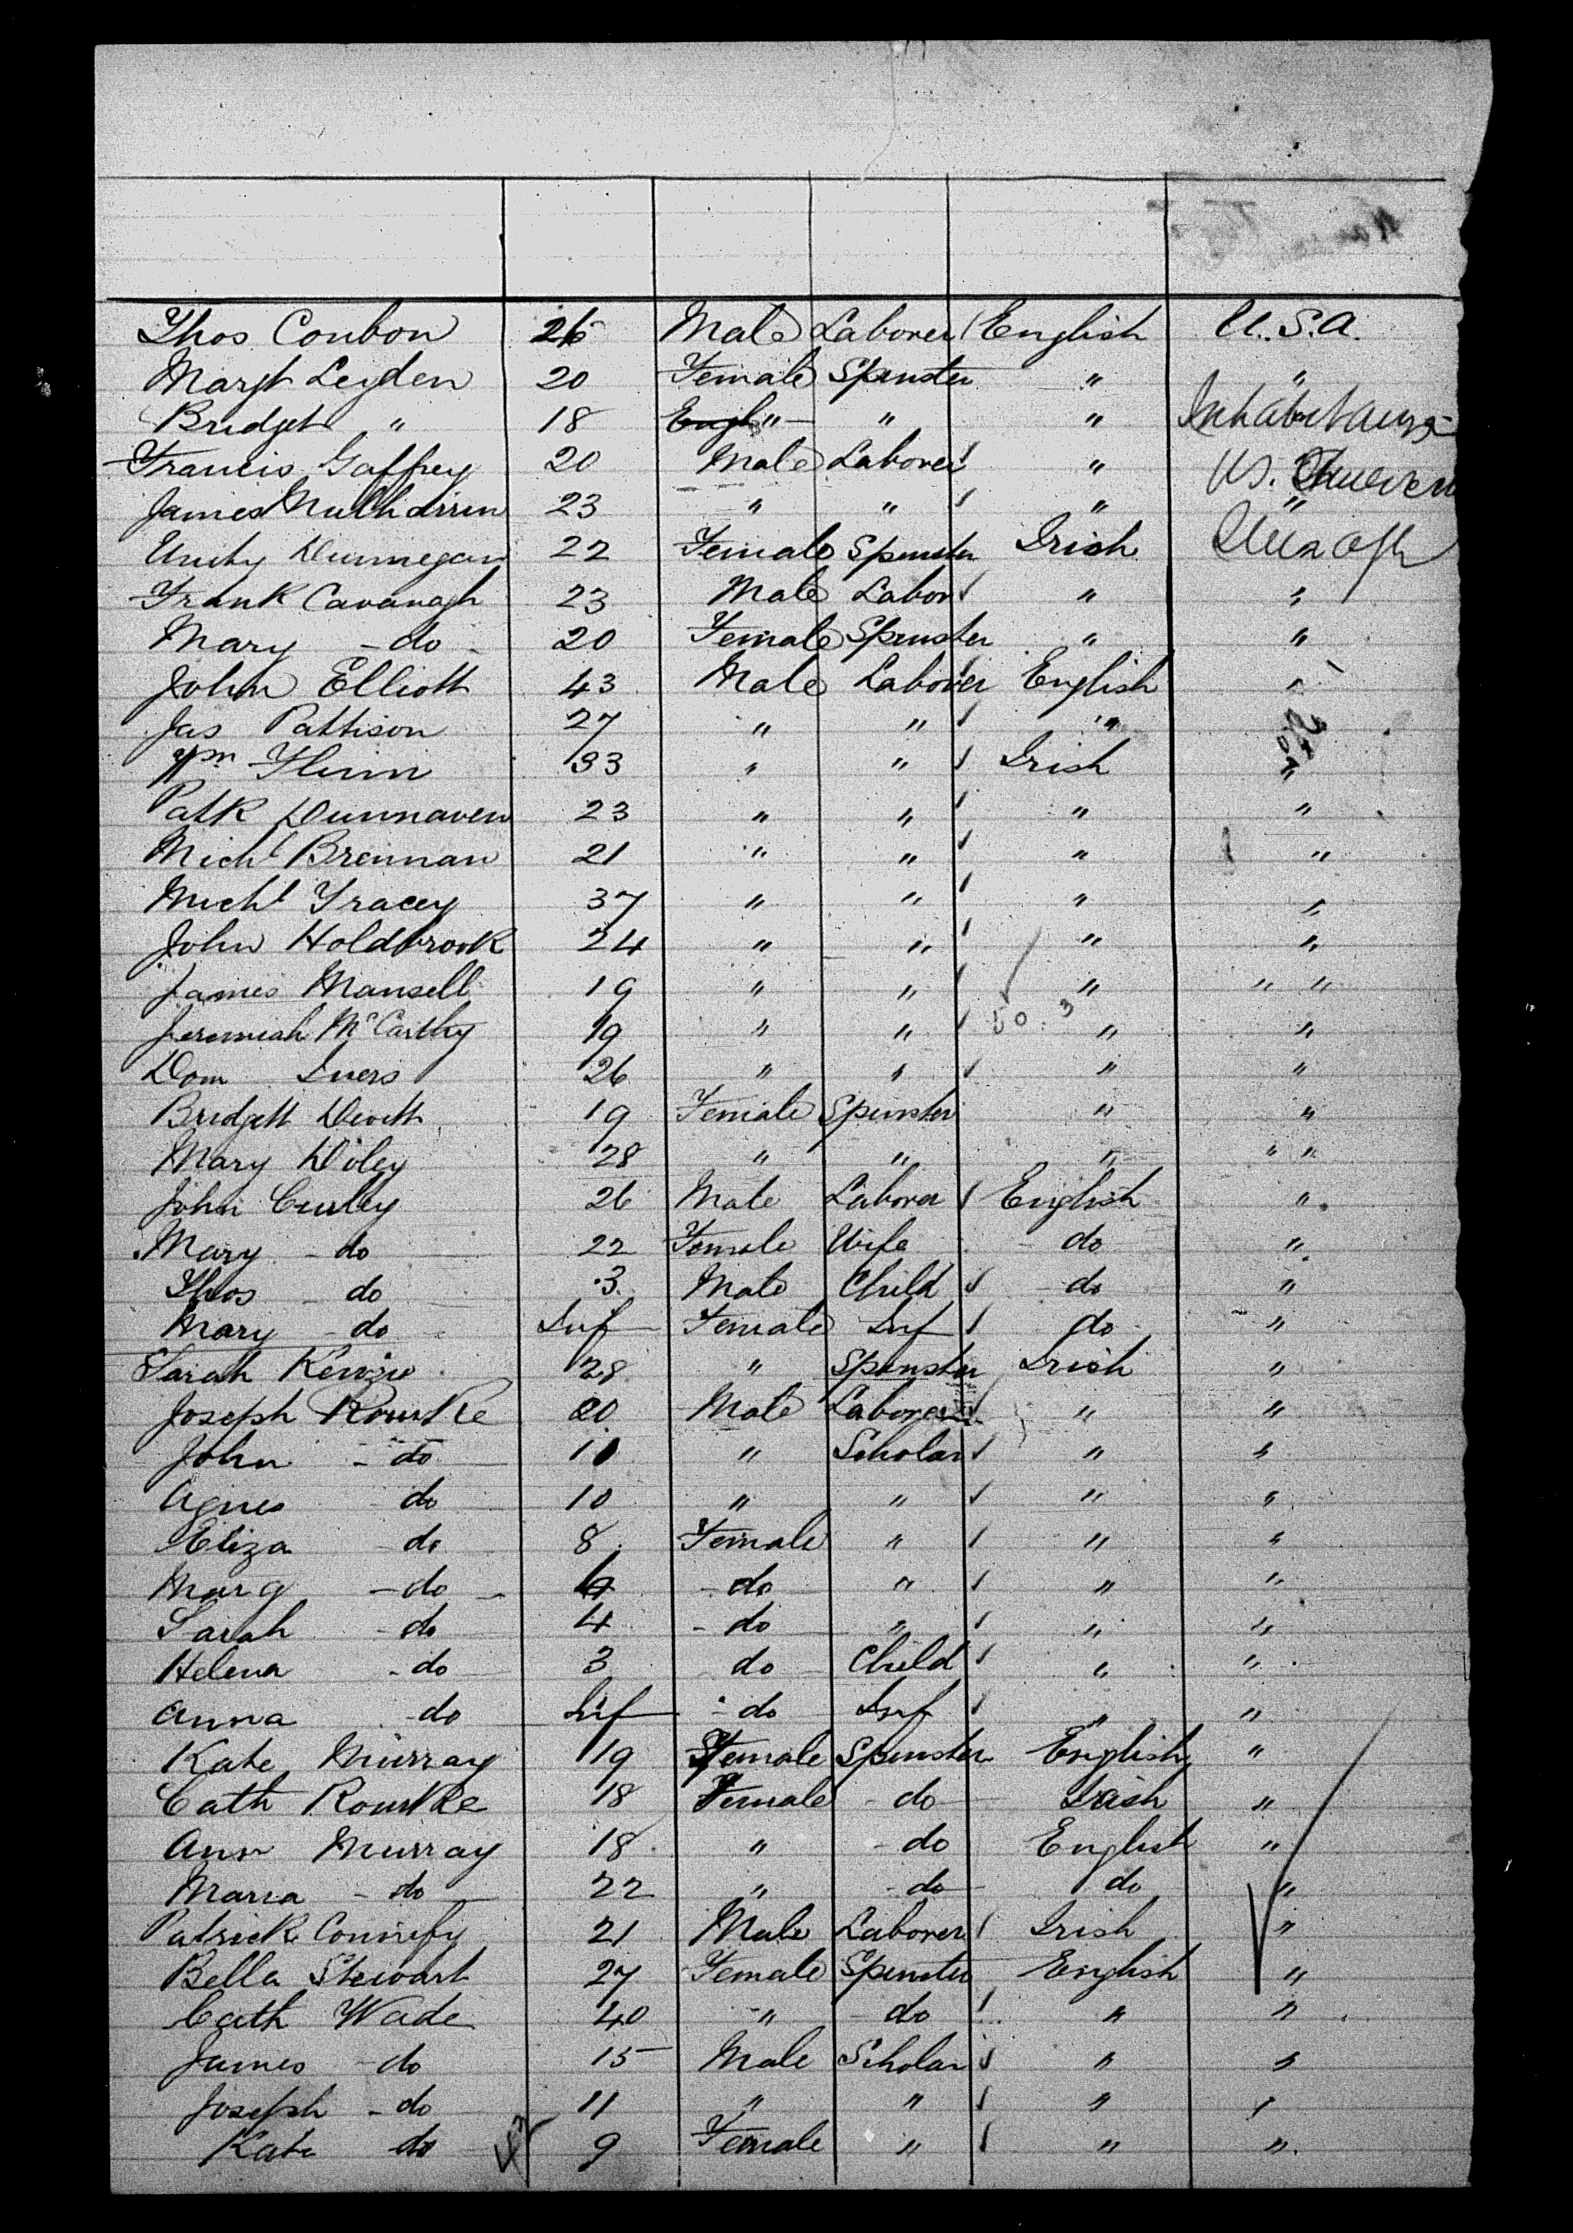 Thos Conbon 26 Male Laborer English U.S.A.
Margt Leyden 20 Female Spinster " "
Bridget " 18 Engl " " "
Francis Gaffrey 20 Male Laborer " US.
James 23 " " " "
Unity Dunnegan 22 Female Spinster Irish
Frank Cavanagh 23 Male Labor " "
Mary - do - 20 Female Spinster " "
John Elliott 43 Male Laborer English "
Jas Pattison 27 " " "
Wm Flinn 33 " " Irish "
Patk Dunnaven 23 " " " "
Michl Brennan 21 " " " "
Michl Tracey 37 " " " "
John Holdbrook 24 " " " "
James Mansell 19 " " " " "
50.3
Jeremiah McCarthy 19 " " " "
Dom Ivers 26 " " " "
Bridgett Devitt 19 Female Spinster " "
Mary Doley 28 " " " " "
John Curley 26 Male Laborer English "
Mary - do 22 Female Wife do "
Thos - do 3 Male Child do "
Mary - do Inf Female Inf do "
Sarah 28 " Spinster Irish "
Joseph Rourke 20 Male Laborer " "
John - do 11 " Scholar " "
Agnes do 10 " " " "
Eliza do 8 Female " " "
Marg - do - - do " " "
Sarah - do 4 - do " " "
Helena - do 3 do Child " "
Anna - do Inf - do Inf " "
Kate Murray 19 Female Spinster English "
Cath Rourke 18 Female - do Irish "
Ann Murray 18 " - do English "
Maria - do 22 " - do do "
Patrick 21 Male Laborer Irish "
Bella Stewart 27 Female Spinster English "
Cath Wade 40 " do " "
James do 15 Male Scholar " "
Joseph - do 11 " " " "
Kate do 9 Female " " "